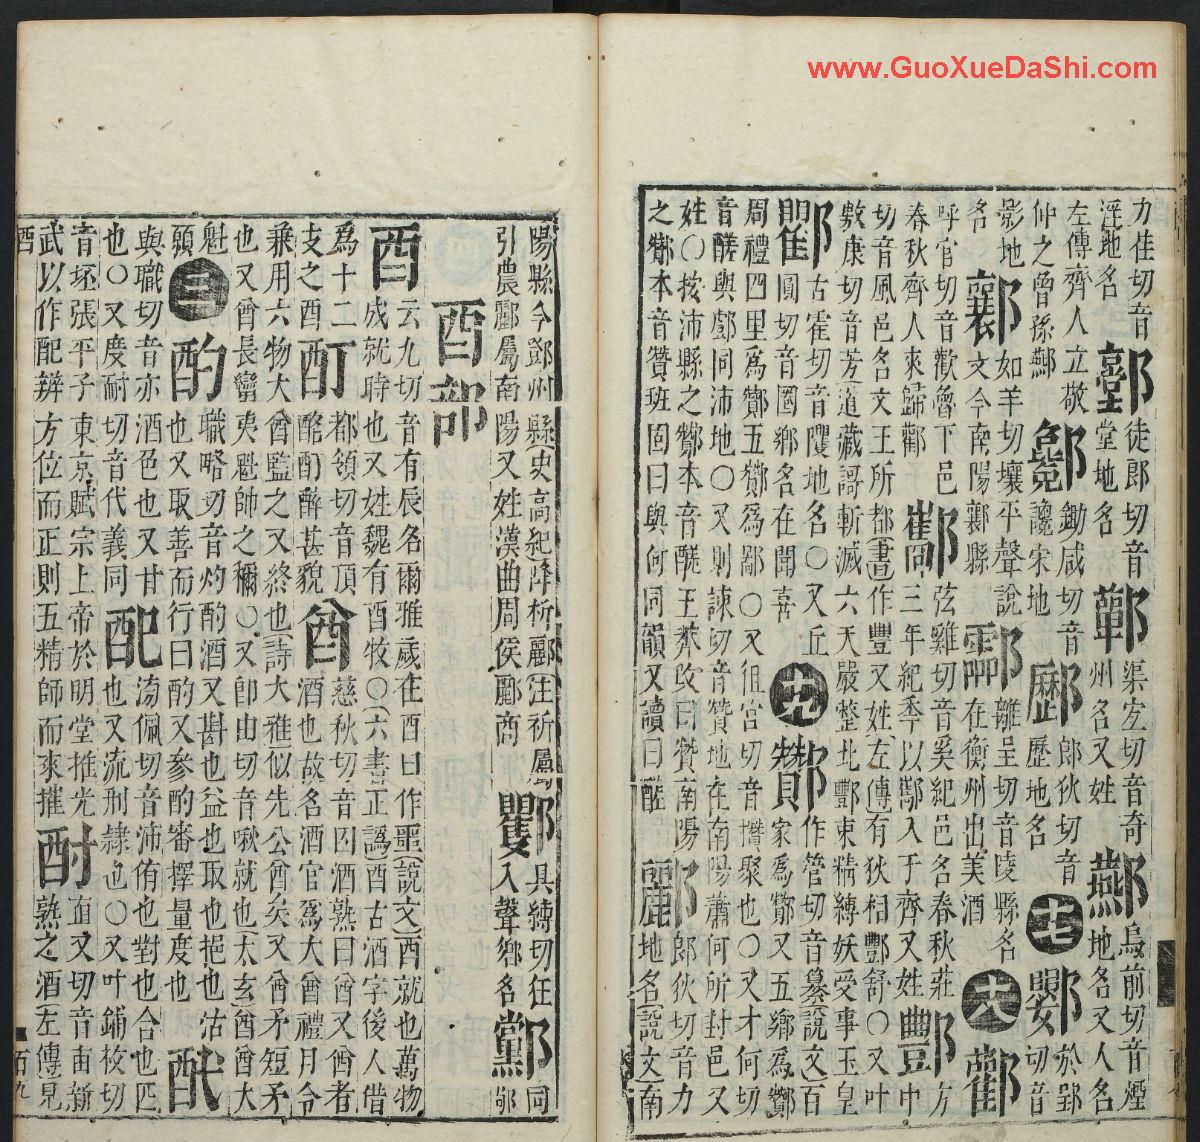 www.GuoXueDaShi.com
力隹切音鄳徒郎切音鄿渠宜切音奇酀烏前切音煙
地名堂地名州名又姓地名又人名
左傳齊人立敬酁鋤咸切音郎狄切音於郢
仲之曾孫酀讒宋地酈歷地名 十七 切音
影地 如羊切壤平聲說酃離呈切音陵縣名
名 文今南陽縣 在衡州出美酒 十八 酄
呼官切音歡魯下邑酅弦雞切音奚紀邑名春秋莊酆方
春秋齊人來歸酄三年紀季以酅入于齊又姓 中
切音風邑名文王所都書作豐又姓左傳有狄相酆舒〇又叶
敷康切音芳道藏謌斬滅六天嚴整北酆東精縛妖受事玉皇
古霍切音地名〇又丘 十九 酇作管切音纂說文百
圓切音圈鄉名在聞喜 家為酇又五鄉為酇
周禮四里為酇五酇為鄙〇又徂官切音攢聚也〇又才何切
音醝與酂同沛地〇又則諫切音贊地在南陽蕭何所封邑又
姓〇按沛縣之酇本音醝王莽改曰贊南陽酈郎狄切音力
之酇本音贊班固曰與何同韻又讀曰醝 地名說文南
陽縣今鄧州縣史高紀降析酈注析屬 具縛切狂 同
引農酈屬南陽又姓漢曲周侯酈商 入聲鄉名 鄉
酉部
酉云九切音有辰名爾雅歲在酉曰作噩說文酉就也萬物
成就時也又姓魏有酉牧〇六書正譌酉古酒字後人借
為十二酊都領切音頂酋慈秋切音囚酒熟曰酋又酋者
支之酉 酩酊醉甚貌 酒也故名酒官為大酋禮月令
乗用六物大酋監之又終也詩大雅似先公酋矣又酋矛短矛
也又酋長蠻夷魁帥之稱〇又卽由切音啾就也太玄酋酋大
魁 三 酌職略切音灼酌酒又斟也益也取也挹也沽 酖
願 也又取善而行曰酌又參酌審擇量度也
與職切音亦酒色也又甘配滂佩切音沛侑也對也合也匹
也〇又度耐切音代義同 也又流刑隸也〇又叶鋪枚切
音坯張平子東京賦宗上帝於明堂推光酎直又切音宙新
武以作配辨方位而正則五精帥而來摧 熟之酒左傳見
酉 百九